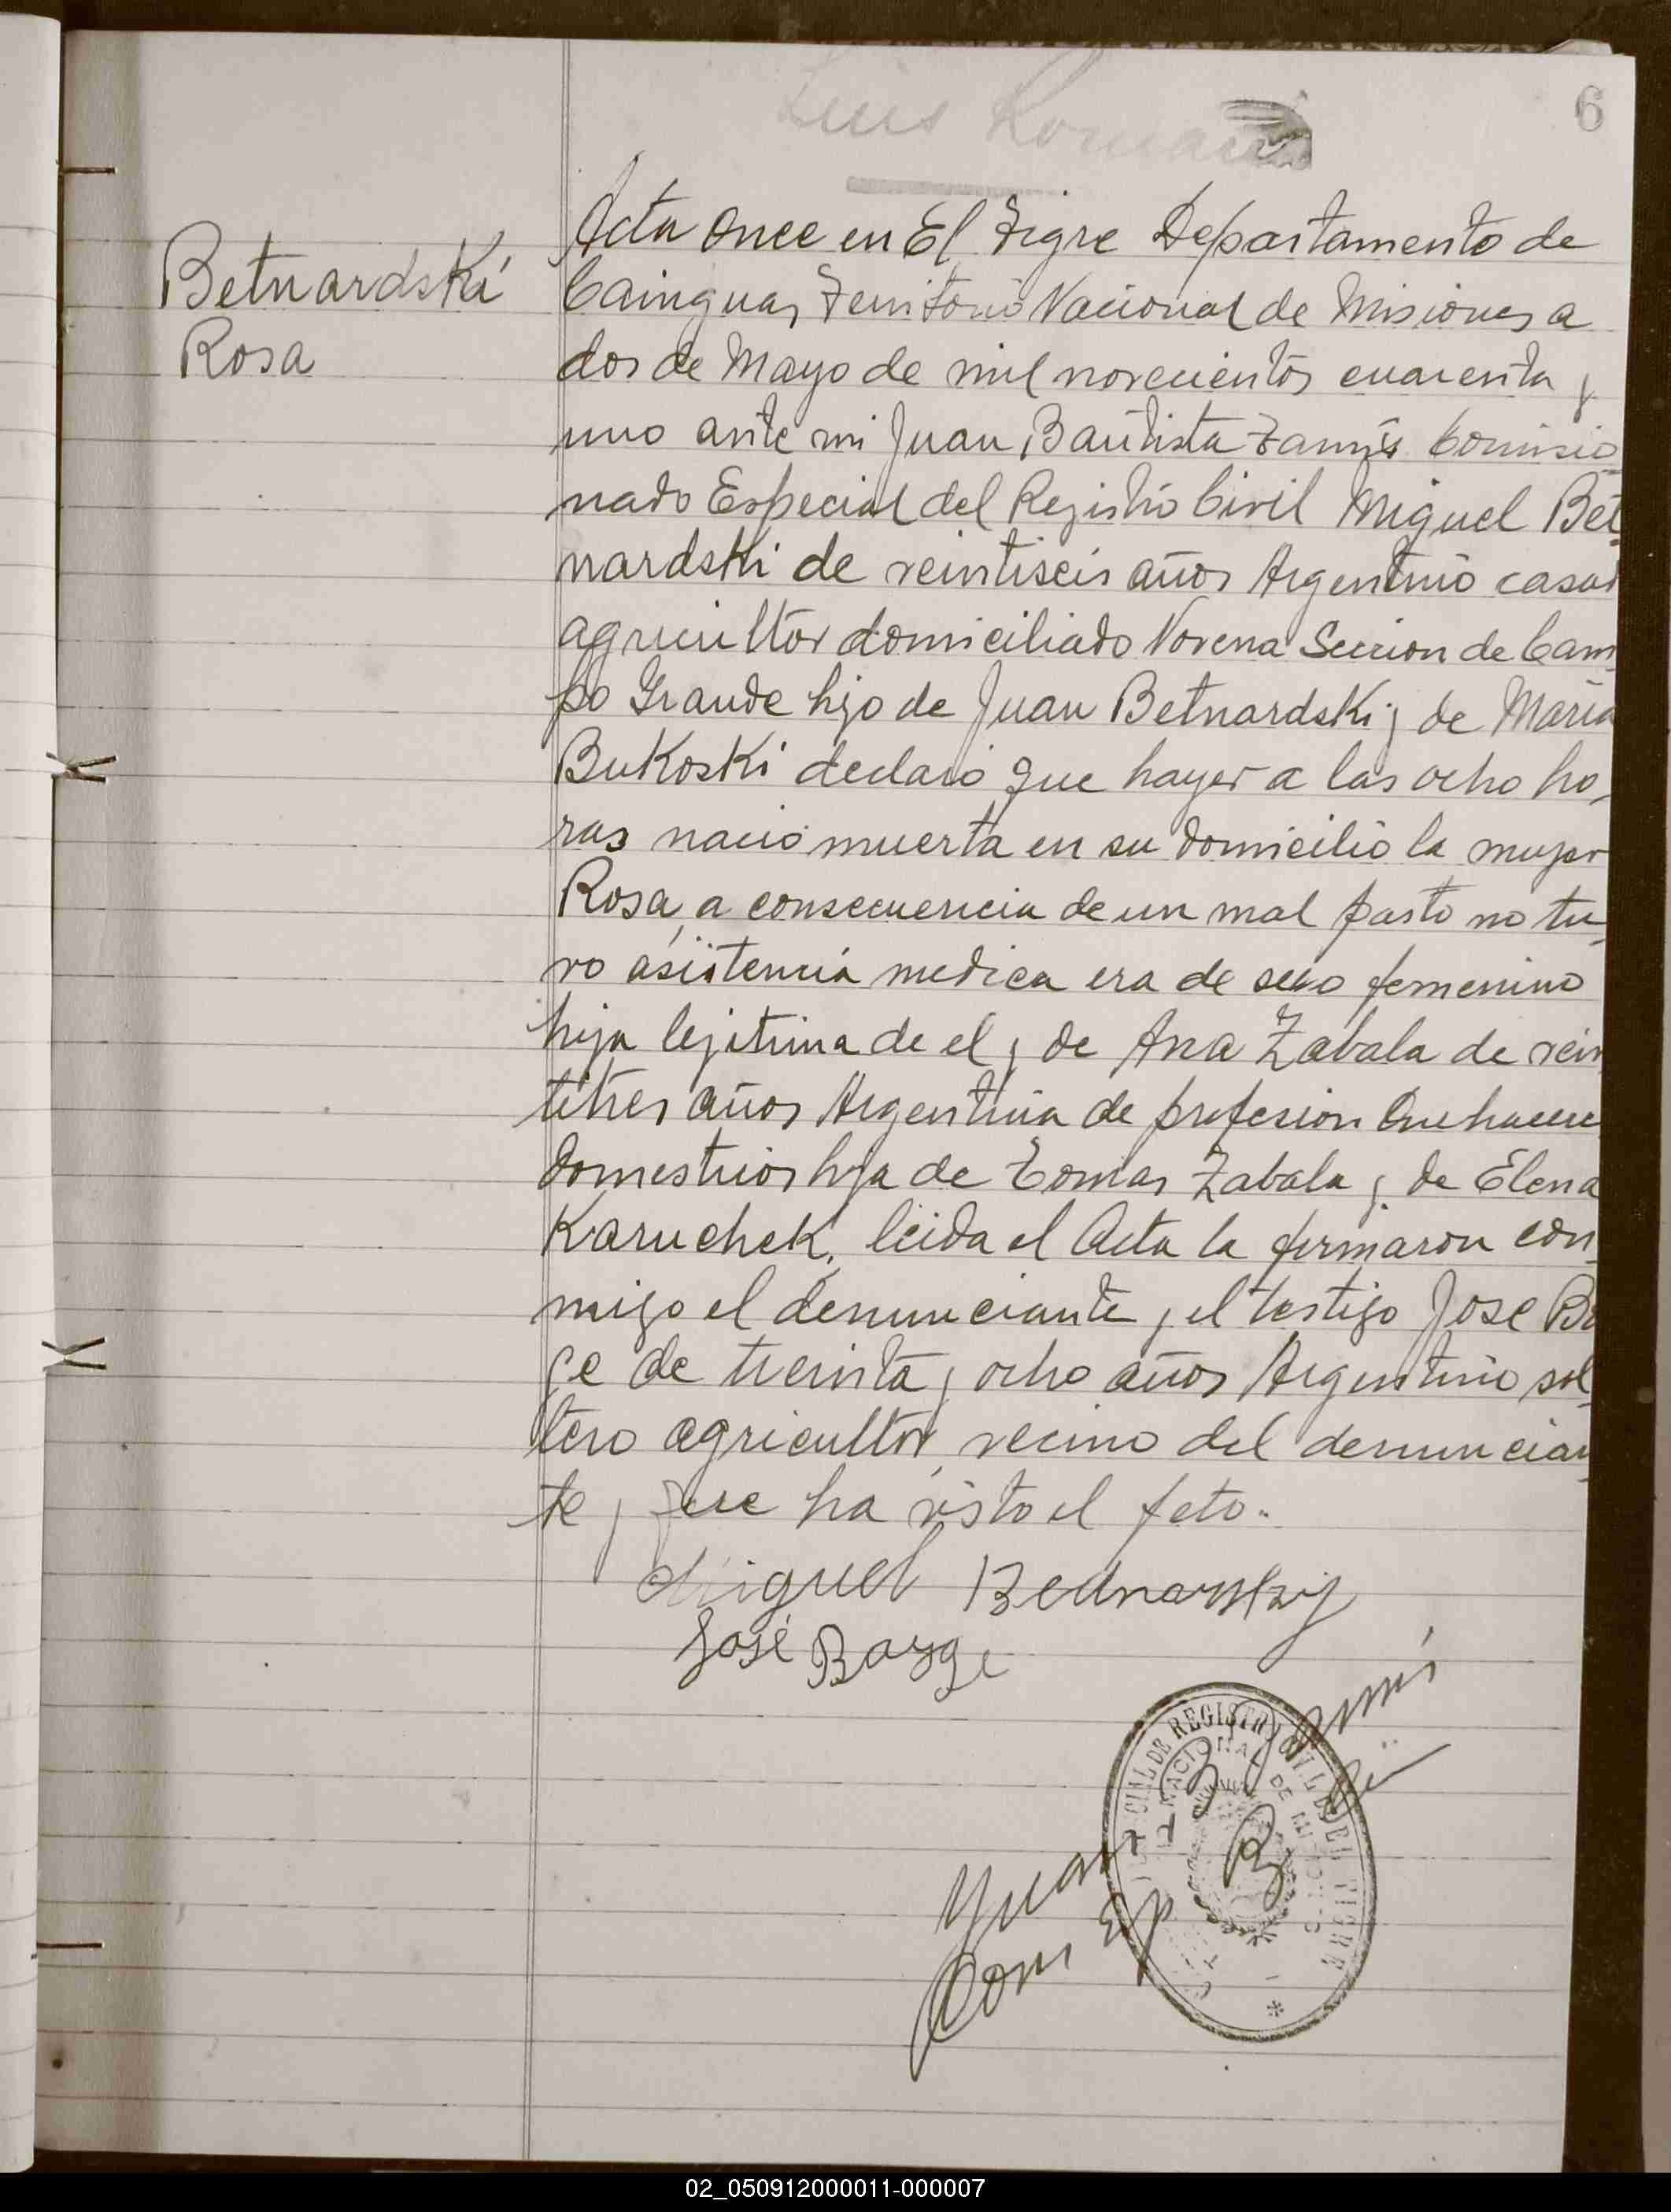 6
Luis Roman
Betnardski
Rosa
Acta Once en El Tigre Departamento de
Cainguas Territorio Nacional de Misiones a
dos de Mayo de mil novecientos cuarenta y
uno ante mi Juan Bautista Comisio
nado Especial del Registro Civil Miguel Bet
nardski de veintiseis años Argentino casad
agricultor domiciliado Novena Seccion de Cam
po Grande hijo de Juan Betnardski y de Maria
Bukoski declaró que hayer a las ocho ho,
ras nació muerta en su domicilio la mujer
Rosa, a consecuencia de un mal parto no tu,
vo asistencia medica era de sexo femenino
hija lejitima de el y de Ana Zabala de vein
titres años Argentina de profesion Quehacere
domesticos hija de Tomas Zabala y de Elena
Karuchek, leida el Acta la firmaron con
migo el denunciante y el testigo Jose Ba
ge de treinta y ocho años Argentino sol
tero agricultor vecino del denuncian
te y que ha visto el feto.
Miguel Bednarskiy
José
Juan B
Com Esp
REGISTRO CIVIL DE EL TIGRE
NACIONAL DE MISIONES
02_050912000011-000007